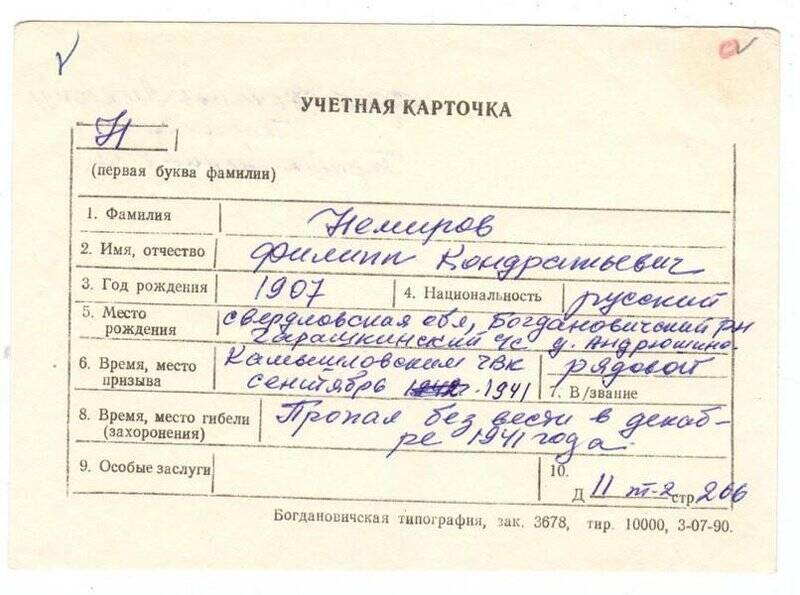 УЧЕТНАЯ КАРТОЧКА
Н
(первая буква фамилии)
1. Фамилия Немиров
2. Имя, отчество Филипп Кондратьевич
3. Год рождения 1907 4. Национальность русский
5. Место рождения свердловская обл, Богдановичский рн
Гарашкинский с/с д. Андрюшино.
6. Время, место призыва Камышловским ГВК
сентябрь 1941 7. В/звание рядовой
8. Время, место гибели (захоронения) Пропал без вести в декаб-
ре 1941 года.
9. Особые заслуги 10.
Д 11 т-2 стр. 266
Богдановичская типография, зак. 3678, тир. 10000, 3-07-90.